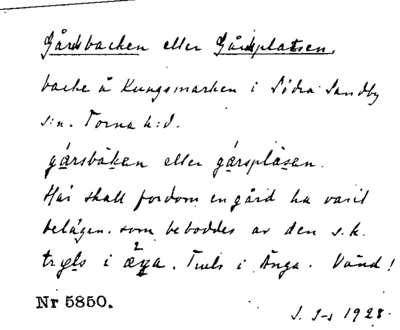 Gårdsbacken eller Gårdsplatsen,
backe å Kungsmarken i Södra Sandby
s:n. Torna h:d.
gårsbäken eller gårsplåsen.
Här skall fordom en gård ha varit
belägen, som beboddes av den s.k.
tryls i æŋa. Truls i Änga. Vänd!
Nr 5850.
1928.